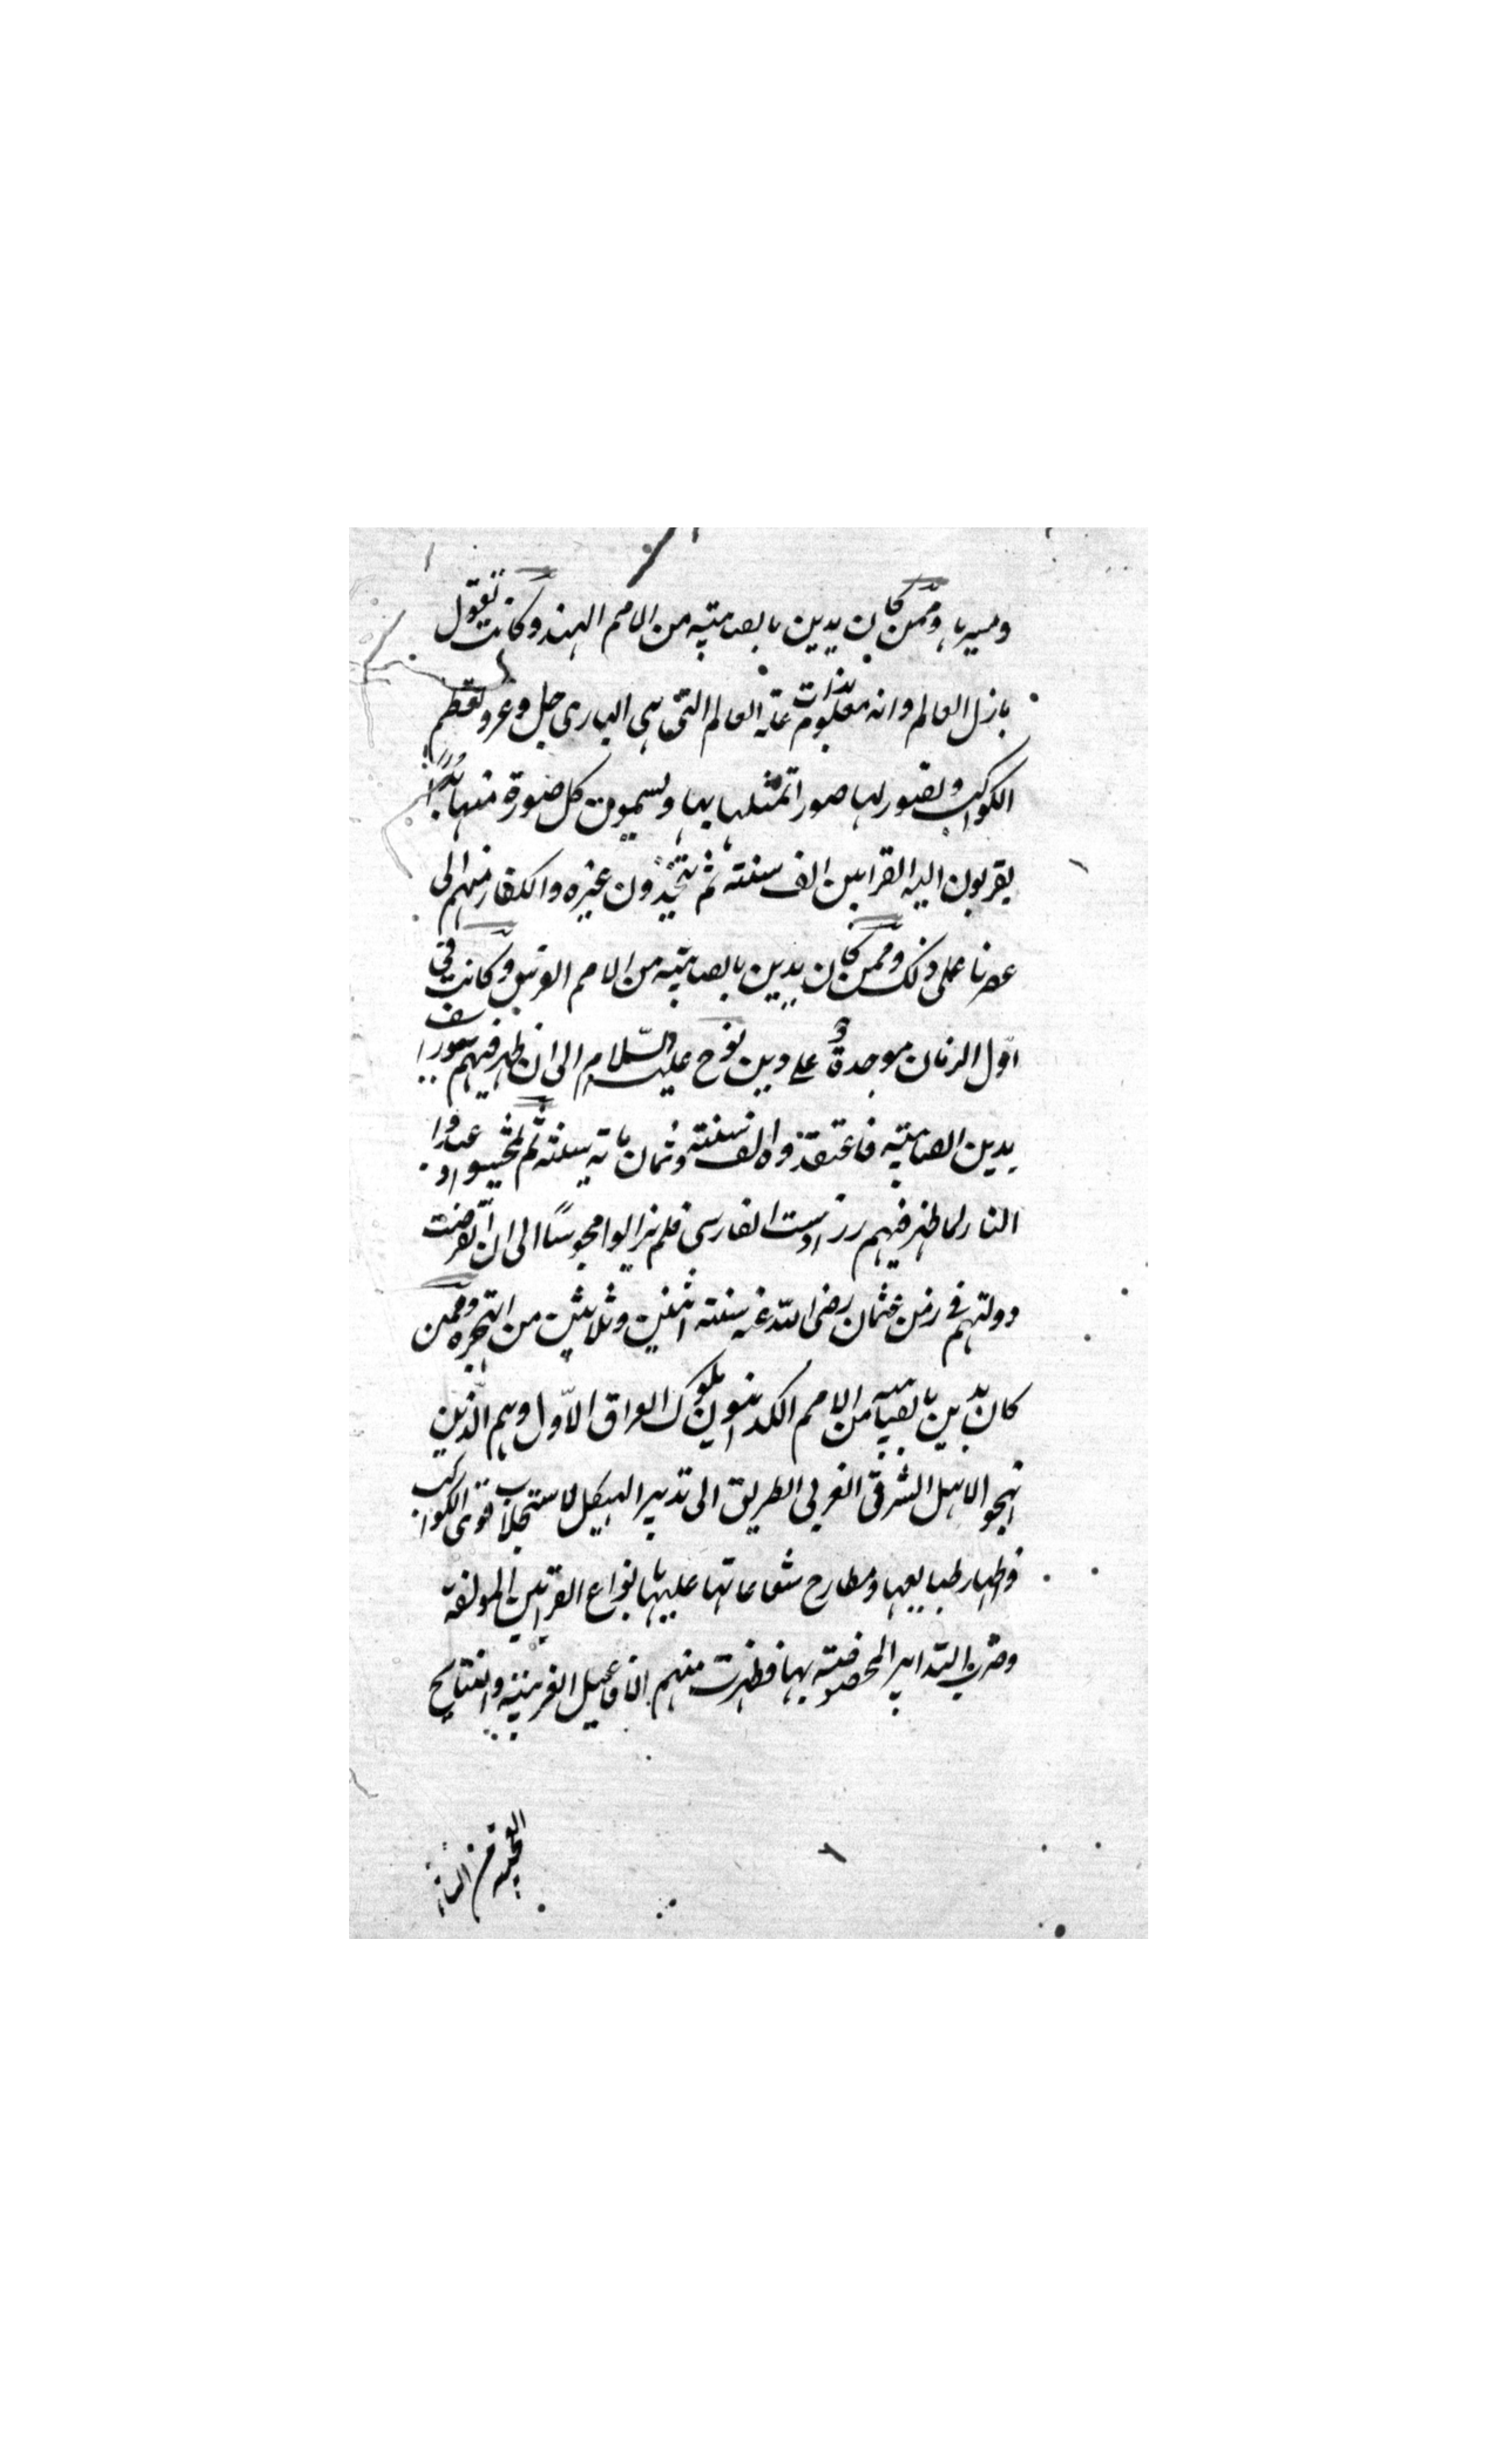 ومسيرها وممن كان يدين بالصابية من الامم الهند وكانت تقول
بازل العالم وانه معلوم بذات علة العالم التي هي الباري جل وعز وتعظم
الكواكب وتصور لها صورا تمثلها بها ويسمون كل صورة منها بدًا
يقربون اليه القرابين الف سنة ثم يتخذون غيره والكفار منهم الى
عصرنا على ذلك وممن كان يدين بالصابية من الامم الفرس وكانت في
اوّل الزمان موحدةً على دين نوح عليه السّلام الى ان ظهر فيهم
بدين الصابية فاعتقدوه الف سنة وثمان ماية سنة ثم تمجسوا وعبدوا
النار لما ظهر فيهم زرادست الفارسي فلم يزالوا مجوسًا الى ان انقرضت
دولتهم في زمن عثمان رضى الله عنه سنة اثنين وثلاثين من الهجره وممن
كان يدين بالصابية من الامم الكلدانيون ملوك العراق الاوّل وهم الّذين
انهجوا لاهل الشرق الغربي الطريق الى تدبير الهيكل لاستجلاب قوى الكواكب
وظهار طبايعها ومطارح شعاعاتها عليها بانواع القرابين المولفة
وضرب التدابير المخصوصة بها فظهرت منهم الافاعيل الغريبة والنتايج